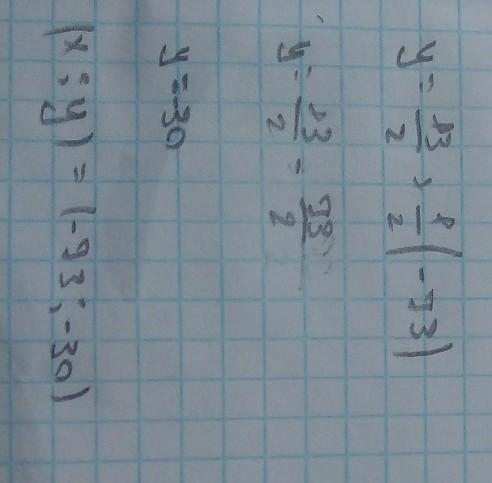 y = 13/2 + 1/2 (-73)
y = 13/2 - 73/2
y = -30
(x; y) = (-73; -30)